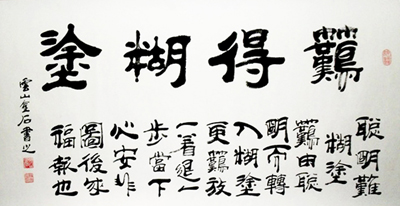 難得糊塗
聰明難
糊塗
難由聰
明而轉
入糊塗
更難放
一着退一
步當下
心安非
圖後來
福報也
雲山石書之